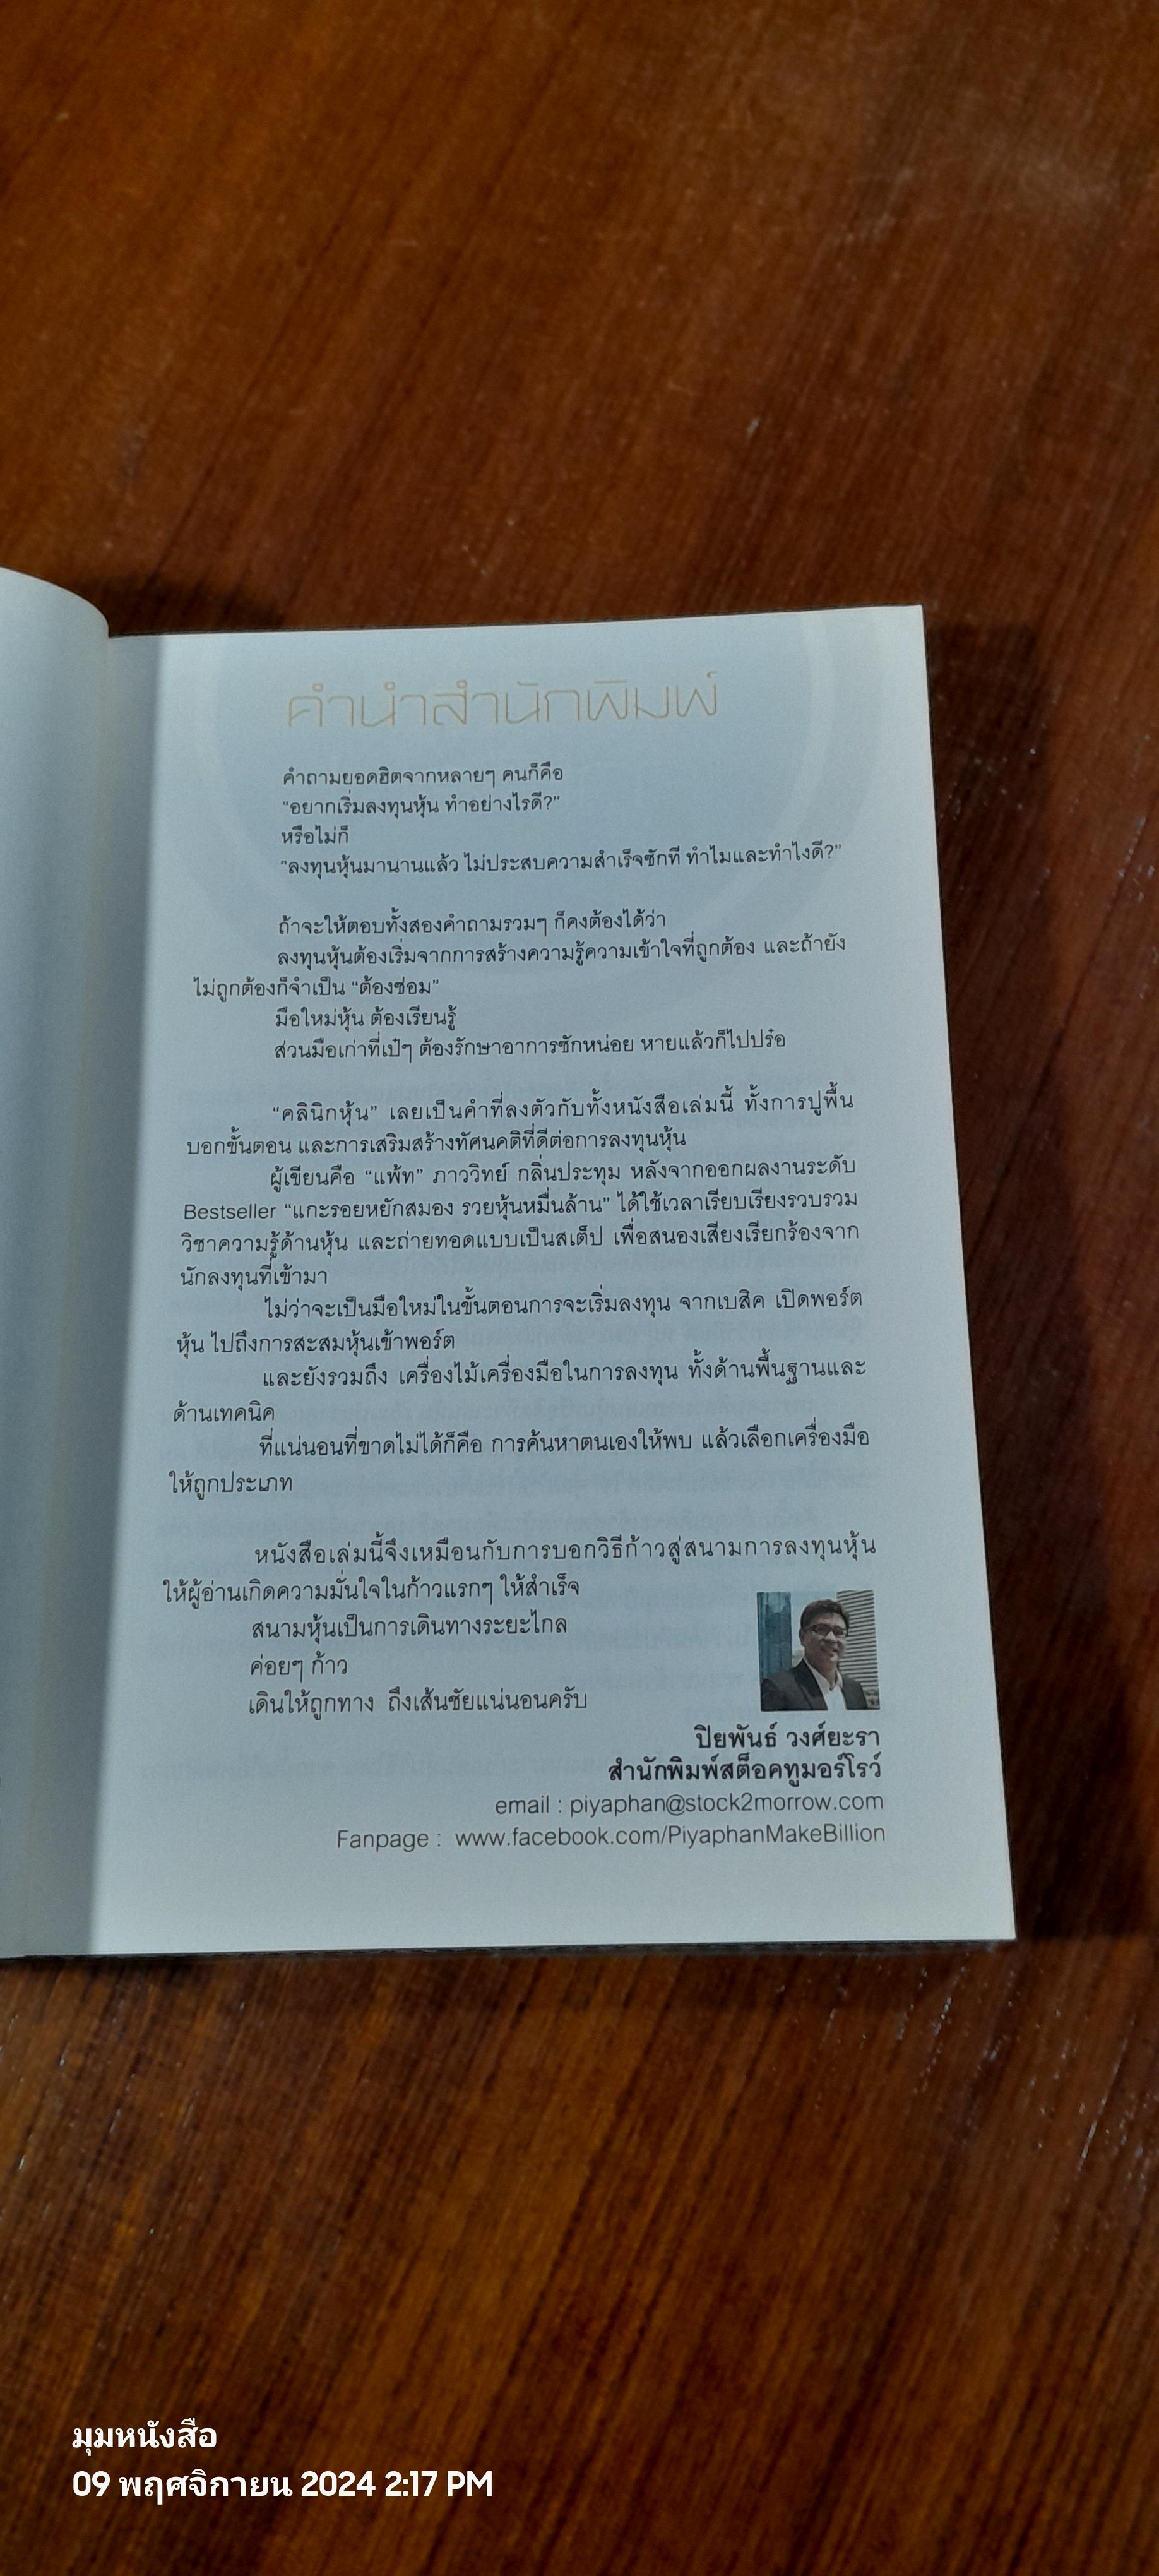 คำนำสำนักพิมพ์
คำถามยอดฮิตจากหลายๆ คนก็คือ
“อยากเริ่มลงทุนหุ้น ทำอย่างไรดี?”
หรือไม่ก็
“ลงทุนหุ้นมานานแล้ว ไม่ประสบความสำเร็จซักที ทำไมและทำไงดี?”
ถ้าจะให้ตอบทั้งสองคำถามรวมๆ ก็คงต้องได้ว่า
ลงทุนหุ้นต้องเริ่มจากการสร้างความรู้ความเข้าใจที่ถูกต้อง และถ้ายัง
ไม่ถูกต้องก็จำเป็น “ต้องซ่อม”
มือใหม่หุ้น ต้องเรียนรู้
ส่วนมือเก่าที่เป๋ๆ ต้องรักษาอาการซักหน่อย หายแล้วก็ไปปร๋อ
“คลินิกหุ้น” เลยเป็นคำที่ลงตัวกับทั้งหนังสือเล่มนี้ ทั้งการปูพื้น
บอกขั้นตอน และการเสริมสร้างทัศนคติที่ดีต่อการลงทุนหุ้น
ผู้เขียนคือ “แพ้ท” ภาววิทย์ กลิ่นประทุม หลังจากออกผลงานระดับ
Bestseller “แกะรอยหยักสมอง รวยหุ้นหมื่นล้าน” ได้ใช้เวลาเรียบเรียงรวบรวม
วิชาความรู้ด้านหุ้น และถ่ายทอดแบบเป็นสเต็ป เพื่อสนองเสียงเรียกร้องจาก
นักลงทุนที่เข้ามา
ไม่ว่าจะเป็นมือใหม่ในขั้นตอนการจะเริ่มลงทุน จากเบสิค เปิดพอร์ต
หุ้น ไปถึงการสะสมหุ้นเข้าพอร์ต
และยังรวมถึง เครื่องไม้เครื่องมือในการลงทุน ทั้งด้านพื้นฐานและ
ด้านเทคนิค
ที่แน่นอนที่ขาดไม่ได้ก็คือ การค้นหาตนเองให้พบ แล้วเลือกเครื่องมือ
ให้ถูกประเภท
หนังสือเล่มนี้จึงเหมือนกับการบอกวิธีก้าวสู่สนามการลงทุนหุ้น
ให้ผู้อ่านเกิดความมั่นใจในก้าวแรกๆ ให้สำเร็จ
สนามหุ้นเป็นการเดินทางระยะไกล
ค่อยๆ ก้าว
เดินให้ถูกทาง ถึงเส้นชัยแน่นอนครับ
ปิยพันธ์ วงศ์ยะรา
สำนักพิมพ์สต็อคทูมอร์โรว์
email : piyaphan@stock2morrow.com
Fanpage : www.facebook.com/PiyaphanMakeBillion
มุมหนังสือ
09 พฤศจิกายน 2024 2:17 PM